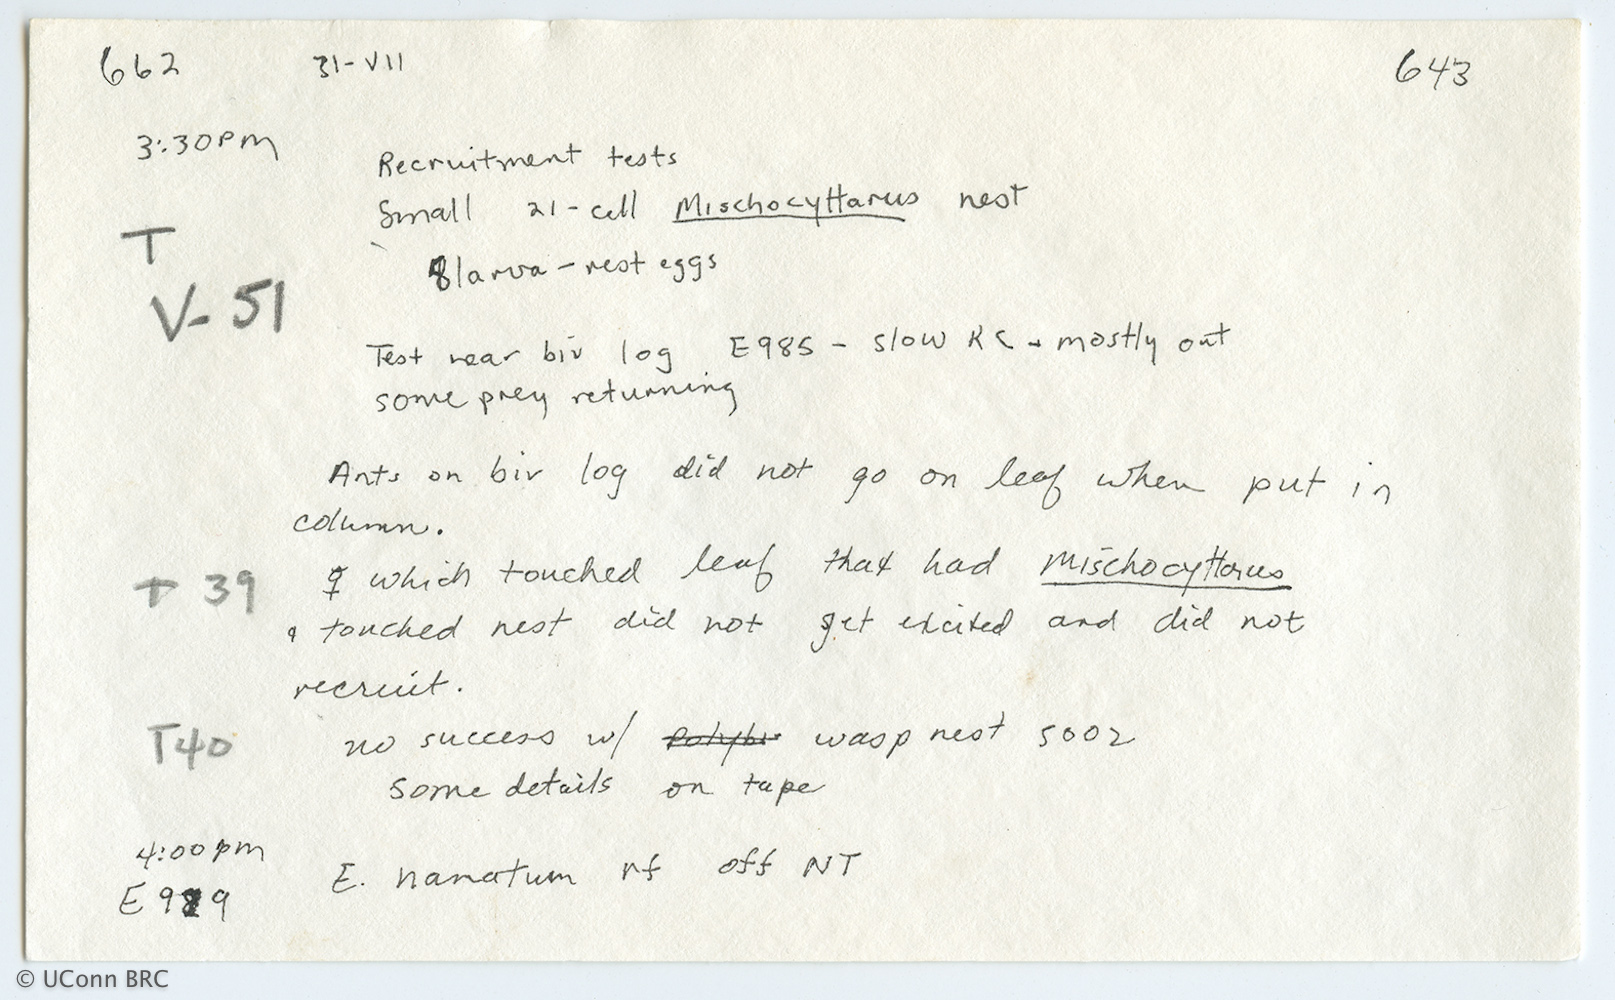 662 31-VII 643
3:30PM
Recruitment tests
Small 21-cell Mischocyttarus nest
T
8 larva - rest eggs
V-51
Test near biv log E985 - slow RC - mostly out
some prey returning
Ants on biv log did not go on leaf when put in
column.
T 39 ☿ which touched leaf that had Mischocyttarus
& touched nest did not get excited and did not
recruit.
T40 no success w/ Polybi wasp nest 5002
Some details on tape
4:00pm
E. hamatum rf off NT
E989
© UConn BRC